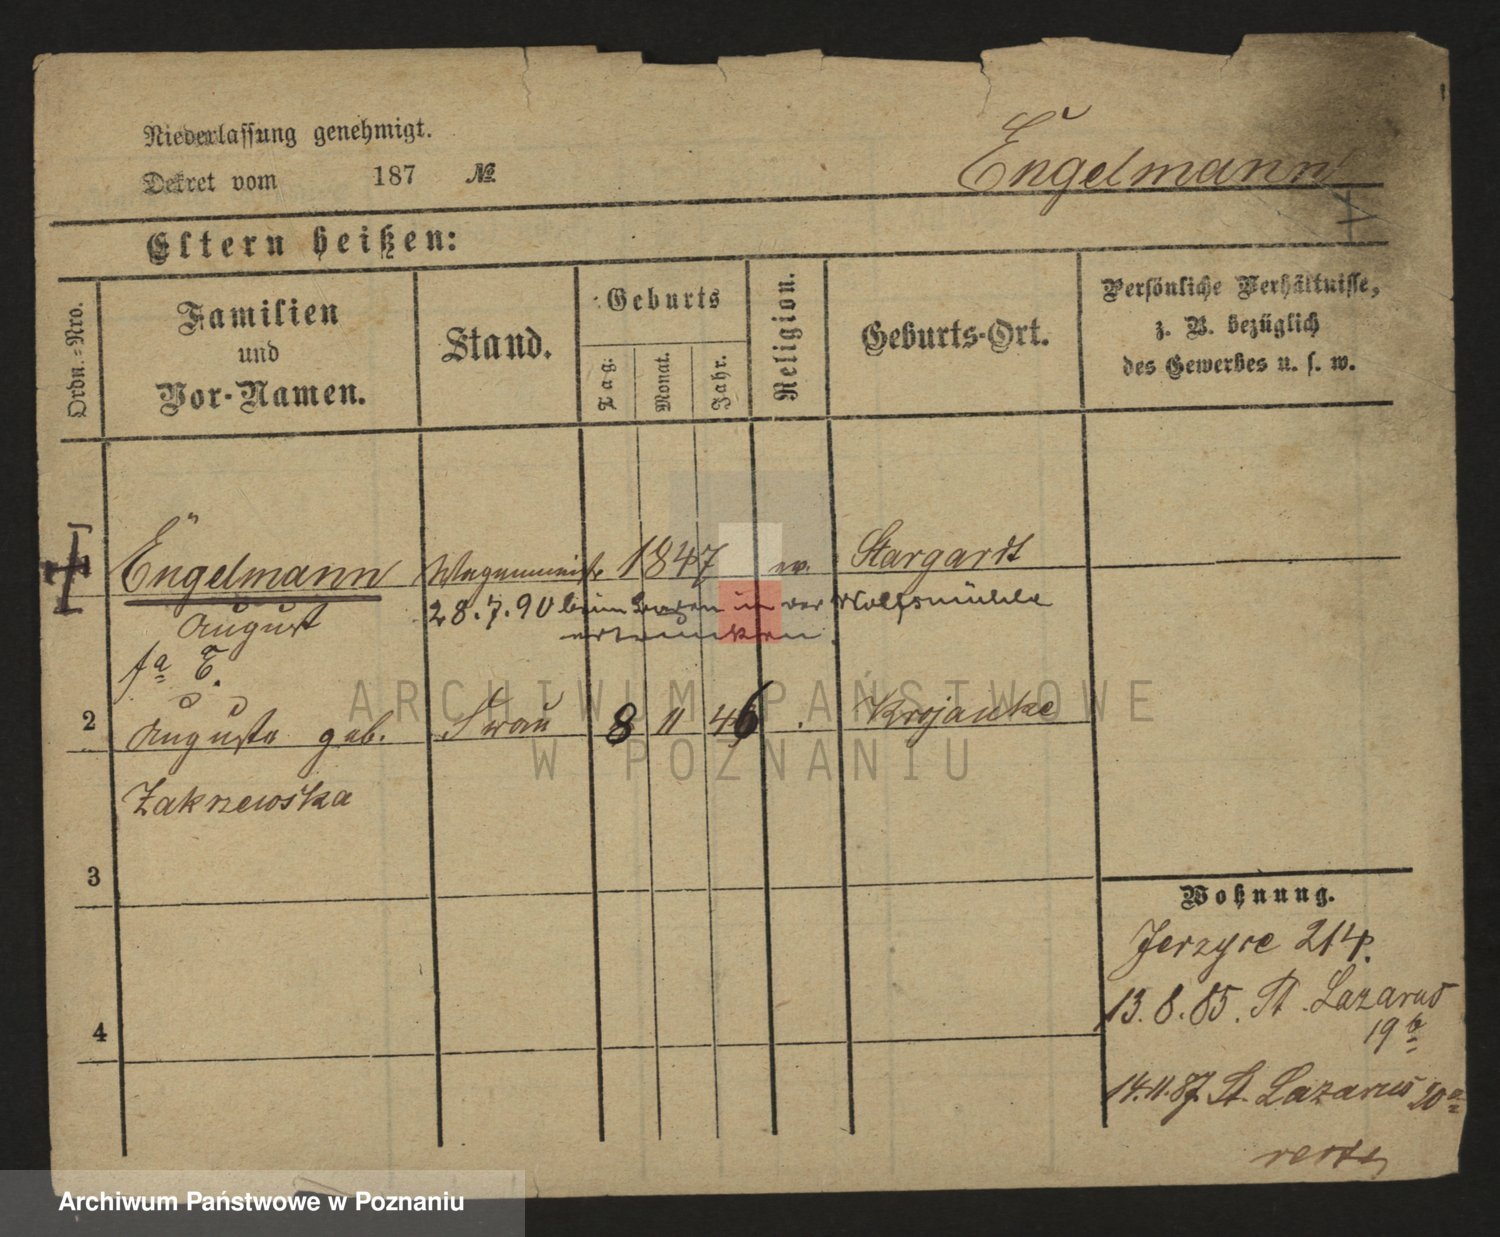 Niederlassung genehmigt.
Dekret vom 187 №
Engelmann
Eltern heißen:
Ordn.=Nro.
Familien
und
Vor-Namen.
Stand.
Geburts
Tag.
Monat.
Jahr.
Religion.
Geburts-Ort.
Persönliche Verhältnisse,
z. B. bezüglich
des Gewerbes u. s. w.
Engelmann Wagenmeistr 1847 ev. Stargardt
August
28.7.90 beim Baden in der Wolfsmühle
ertrunken.
fa E.
2 Auguste geb. Frau 8 11 46 Krojanke
Zakrzewska
3
4
Wohnung.
Jerzyce 214.
13.8.85. St. Lazarus
19b
14.11.87. St. Lazarus 20a
verte
ARCHIWUM PAŃSTWOWE
W POZNANIU
Archiwum Państwowe w Poznaniu